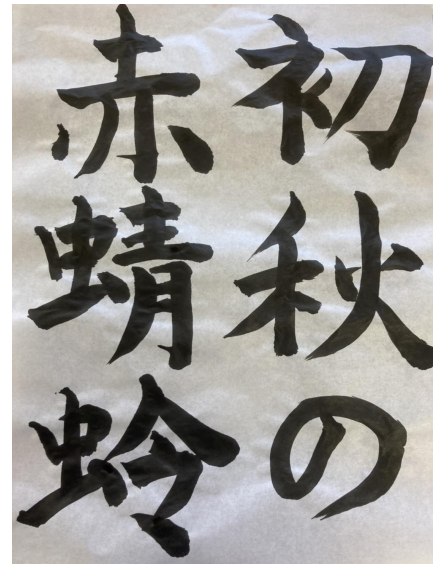 初秋の
赤蜻蛉